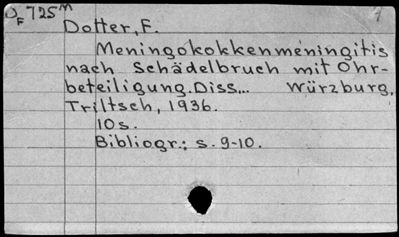 725ᴹ
F
Dotter, F.
Meningokokkenmeningitis
nach Schädelbruch mit Ohr-
beteiligung. Diss... Würzburg,
Triltsch, 1936.
10s.
Bibliogr.; s. 9-10.